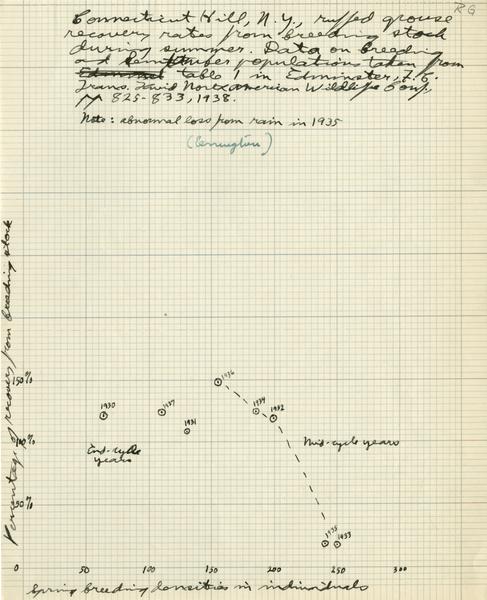 RG
Connecticut Hill, N.Y., ruffed grouse
recovery rates from breeding stock
during summer. Data on breeding
and September populations taken from
table 1 in Edminster, F.C.
Trans. Third North American Wildlife Conf,
pp 825-833, 1938.
Note: abnormal loss from rain in 1935
(Errington)
Percentage of recovery from breeding stock
150%
1936
1930
1937
1934
1932
1931
100%
End-cycle
years
Mid-cycle years
50%
1935
1933
0
0 50 100 150 200 250 300
Spring breeding densities in individuals